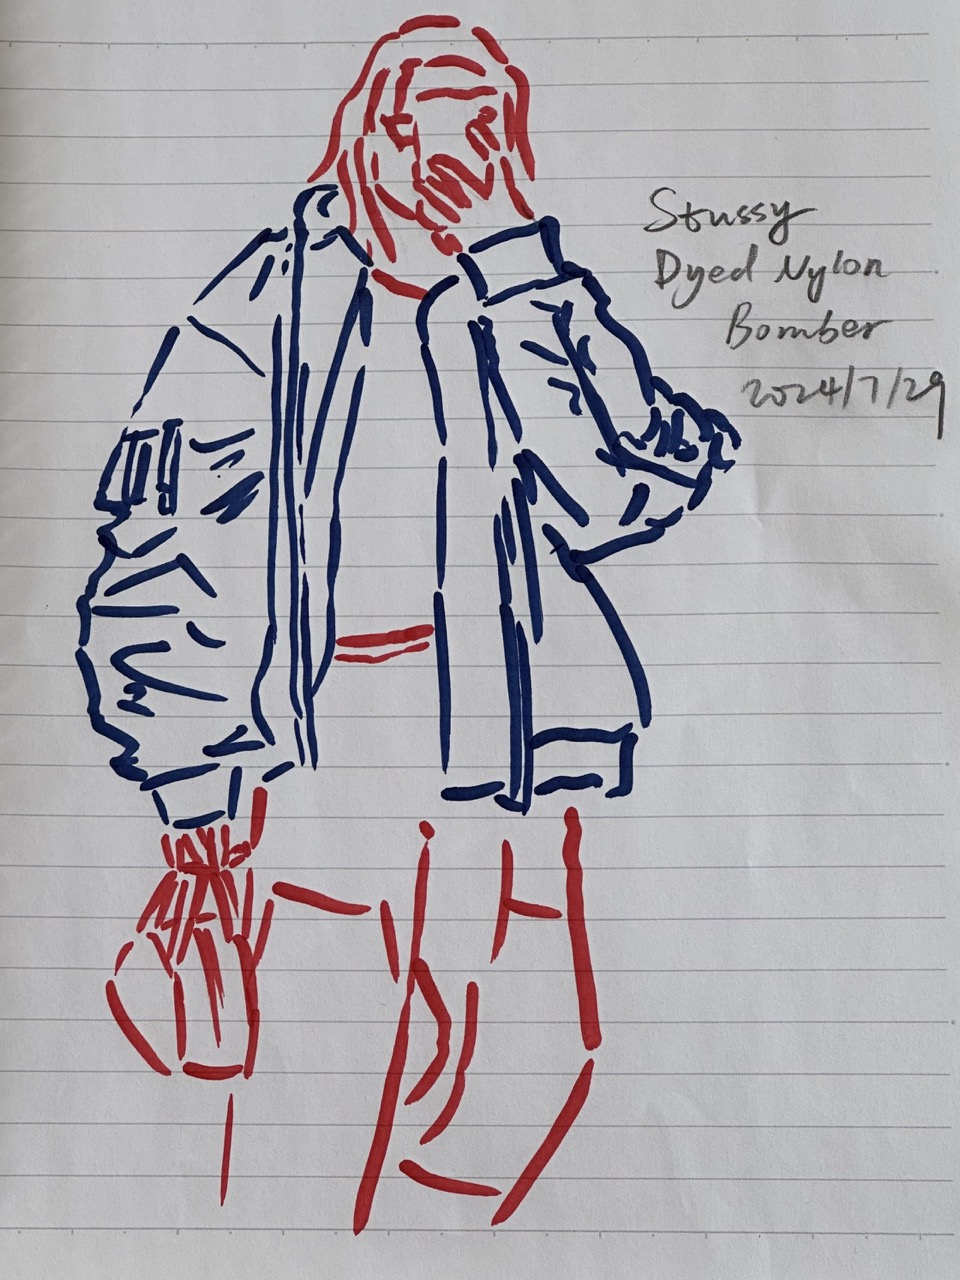 Stussy
Dyed Nylon
Bomber
2024/7/29